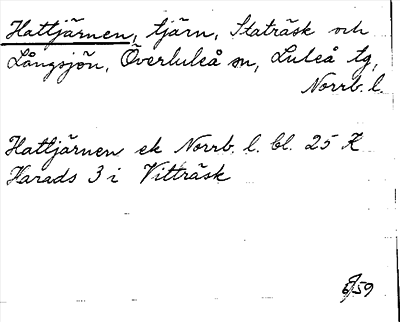 Hattjärnen, tjärn, Staträsk och
Långsjön, Överluleå sn, Luleå tg,
Norrb. l.
Hattjärnen ek Norrb. l. bl. 25 K
Harads 3 i Vitträsk
/59